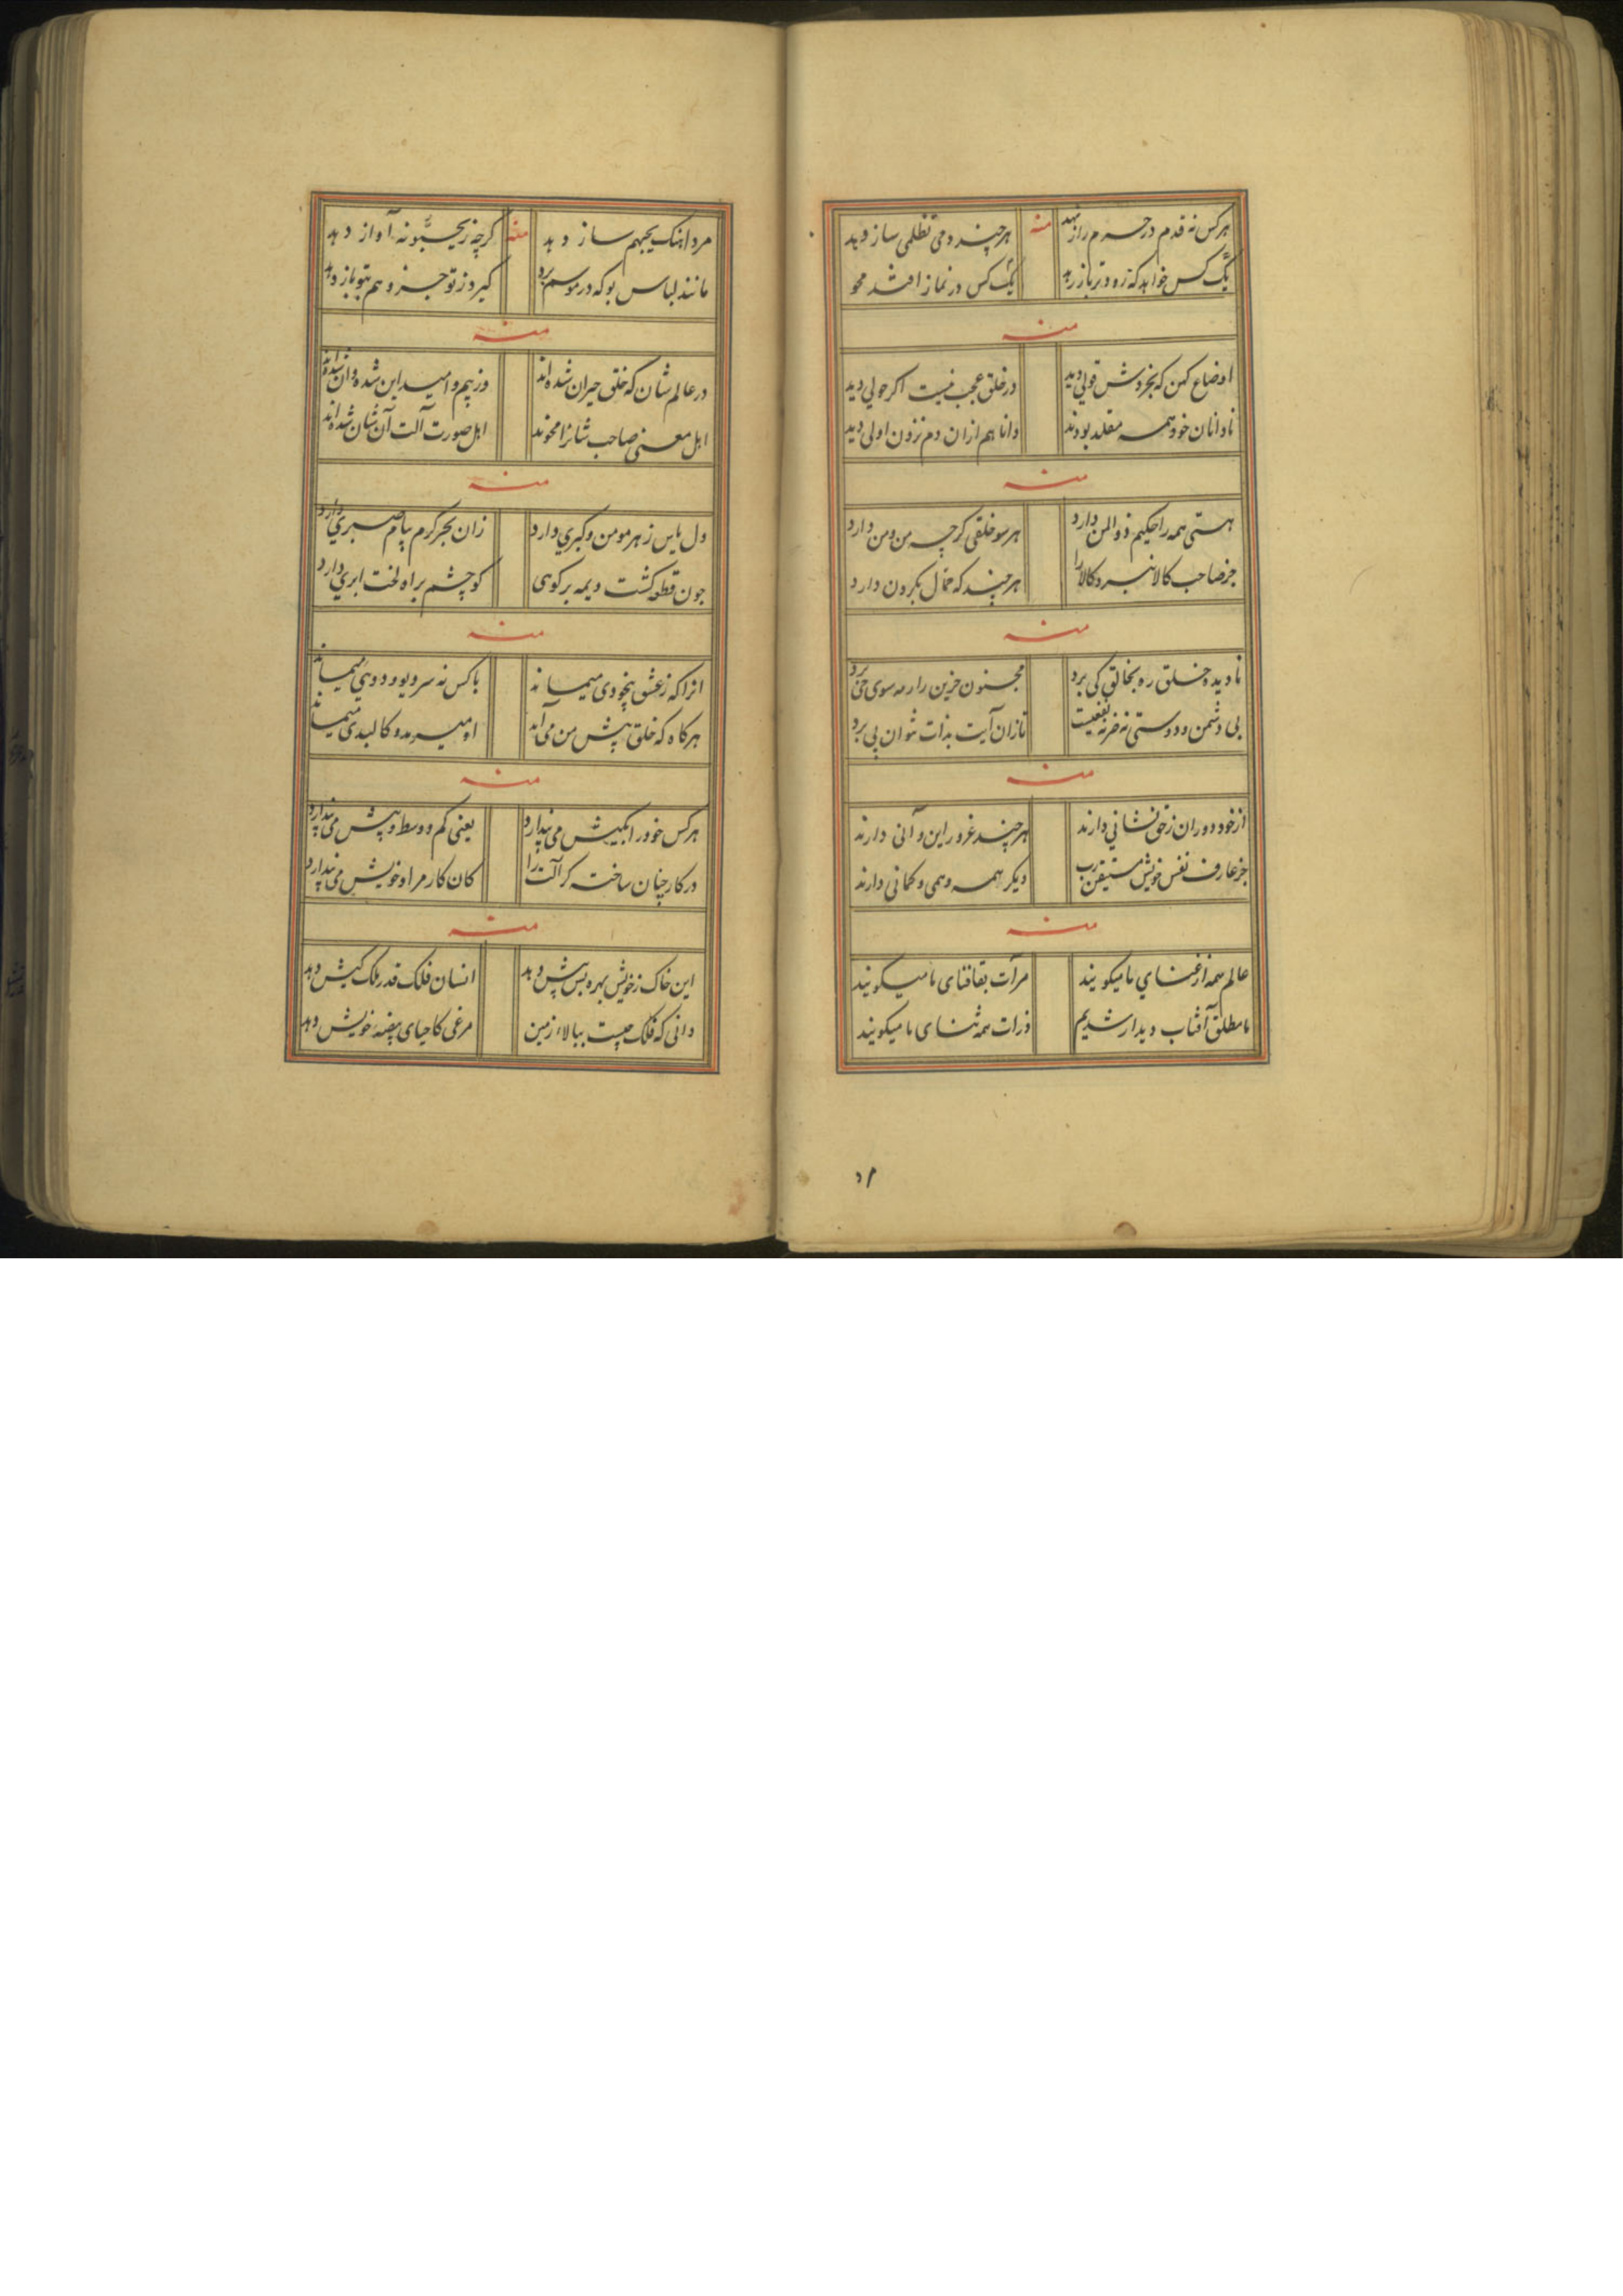 هر کس نه قدم در حرم راز نهد منه هر چند دمی تظلمی ساز دهد
یک کس خواهد که زودتر باز رهد یک کس در نماز افتد محو
منه
اوضاع کهن که بخردش قولی دید در خلق عجب نیست اگر حولی دید
نادانان خود همه مقلد بودند دانا هم ازان دم نزدن اولی دید
منه
هستی همه را حکیم ذوالمن دارد هر سو خلقی گرچه من و من دارد
جز صاحب کالا نبرد کالا را هر چند که حمال بگردن دارد
منه
نادیده خلق ره بخالق کی برد مجنون حزین را رمه سوی حی برد
بی دشمن و دوستی نه ضر نه نفعیست تا زان آیت بذات نتوان پی برد
منه
از خود دوران ز حق نشانی دارند هر چند غرور این و آنی دارند
جز عارف نفس خویش مستیقن رب دیگر همه وهمی و گمانی دارند
منه
عالم همه از غنای ما میگویند مرآت بقا فنای ما میگویند
ما مطلق آفتاب دیدار شدیم ذرات همه ثنای ما میگویند
۵۱
مرد آهنگ بجبهم ساز دهد منه گرچه زیحبونه آواز دهد
مانند لباس بو که در موسم برد گیرد ز تو جز و هم بتو باز دهد
منه
در عالم شان که خلق حیران شده‌اند وز بیم و امید این شده و آن شده‌اند
اهل معنی صاحب شانرا محوند اهل صورت آلت آن شان شده‌اند
منه
دل یاس ز هر مومن و گبری دارد زان بحر کرم پیام صبری دارد
چون قطره گشت دیمه بر کوهی کو چشم براه لخت ابری دارد
منه
انرا که ز عشق بیخودی میماند با کس نه سر و بود و دویی میماند
هرگاه که خلق پیش من می‌آید او میرمد و کالبدی میماند
منه
هر کس خود را بکیش می پندارد یعنی کم و وسط و بیش می پندارد
در کار چنان ساخته گر آلت را کان کار مراد خویش می پندارد
منه
این خاک ز خویش بهره بس بیش دهد انسان فلک قدر ملک کیش دهد
دانی که فلک چیست ببالاء زمین مرغی کاحیای بیضه خویش دهد